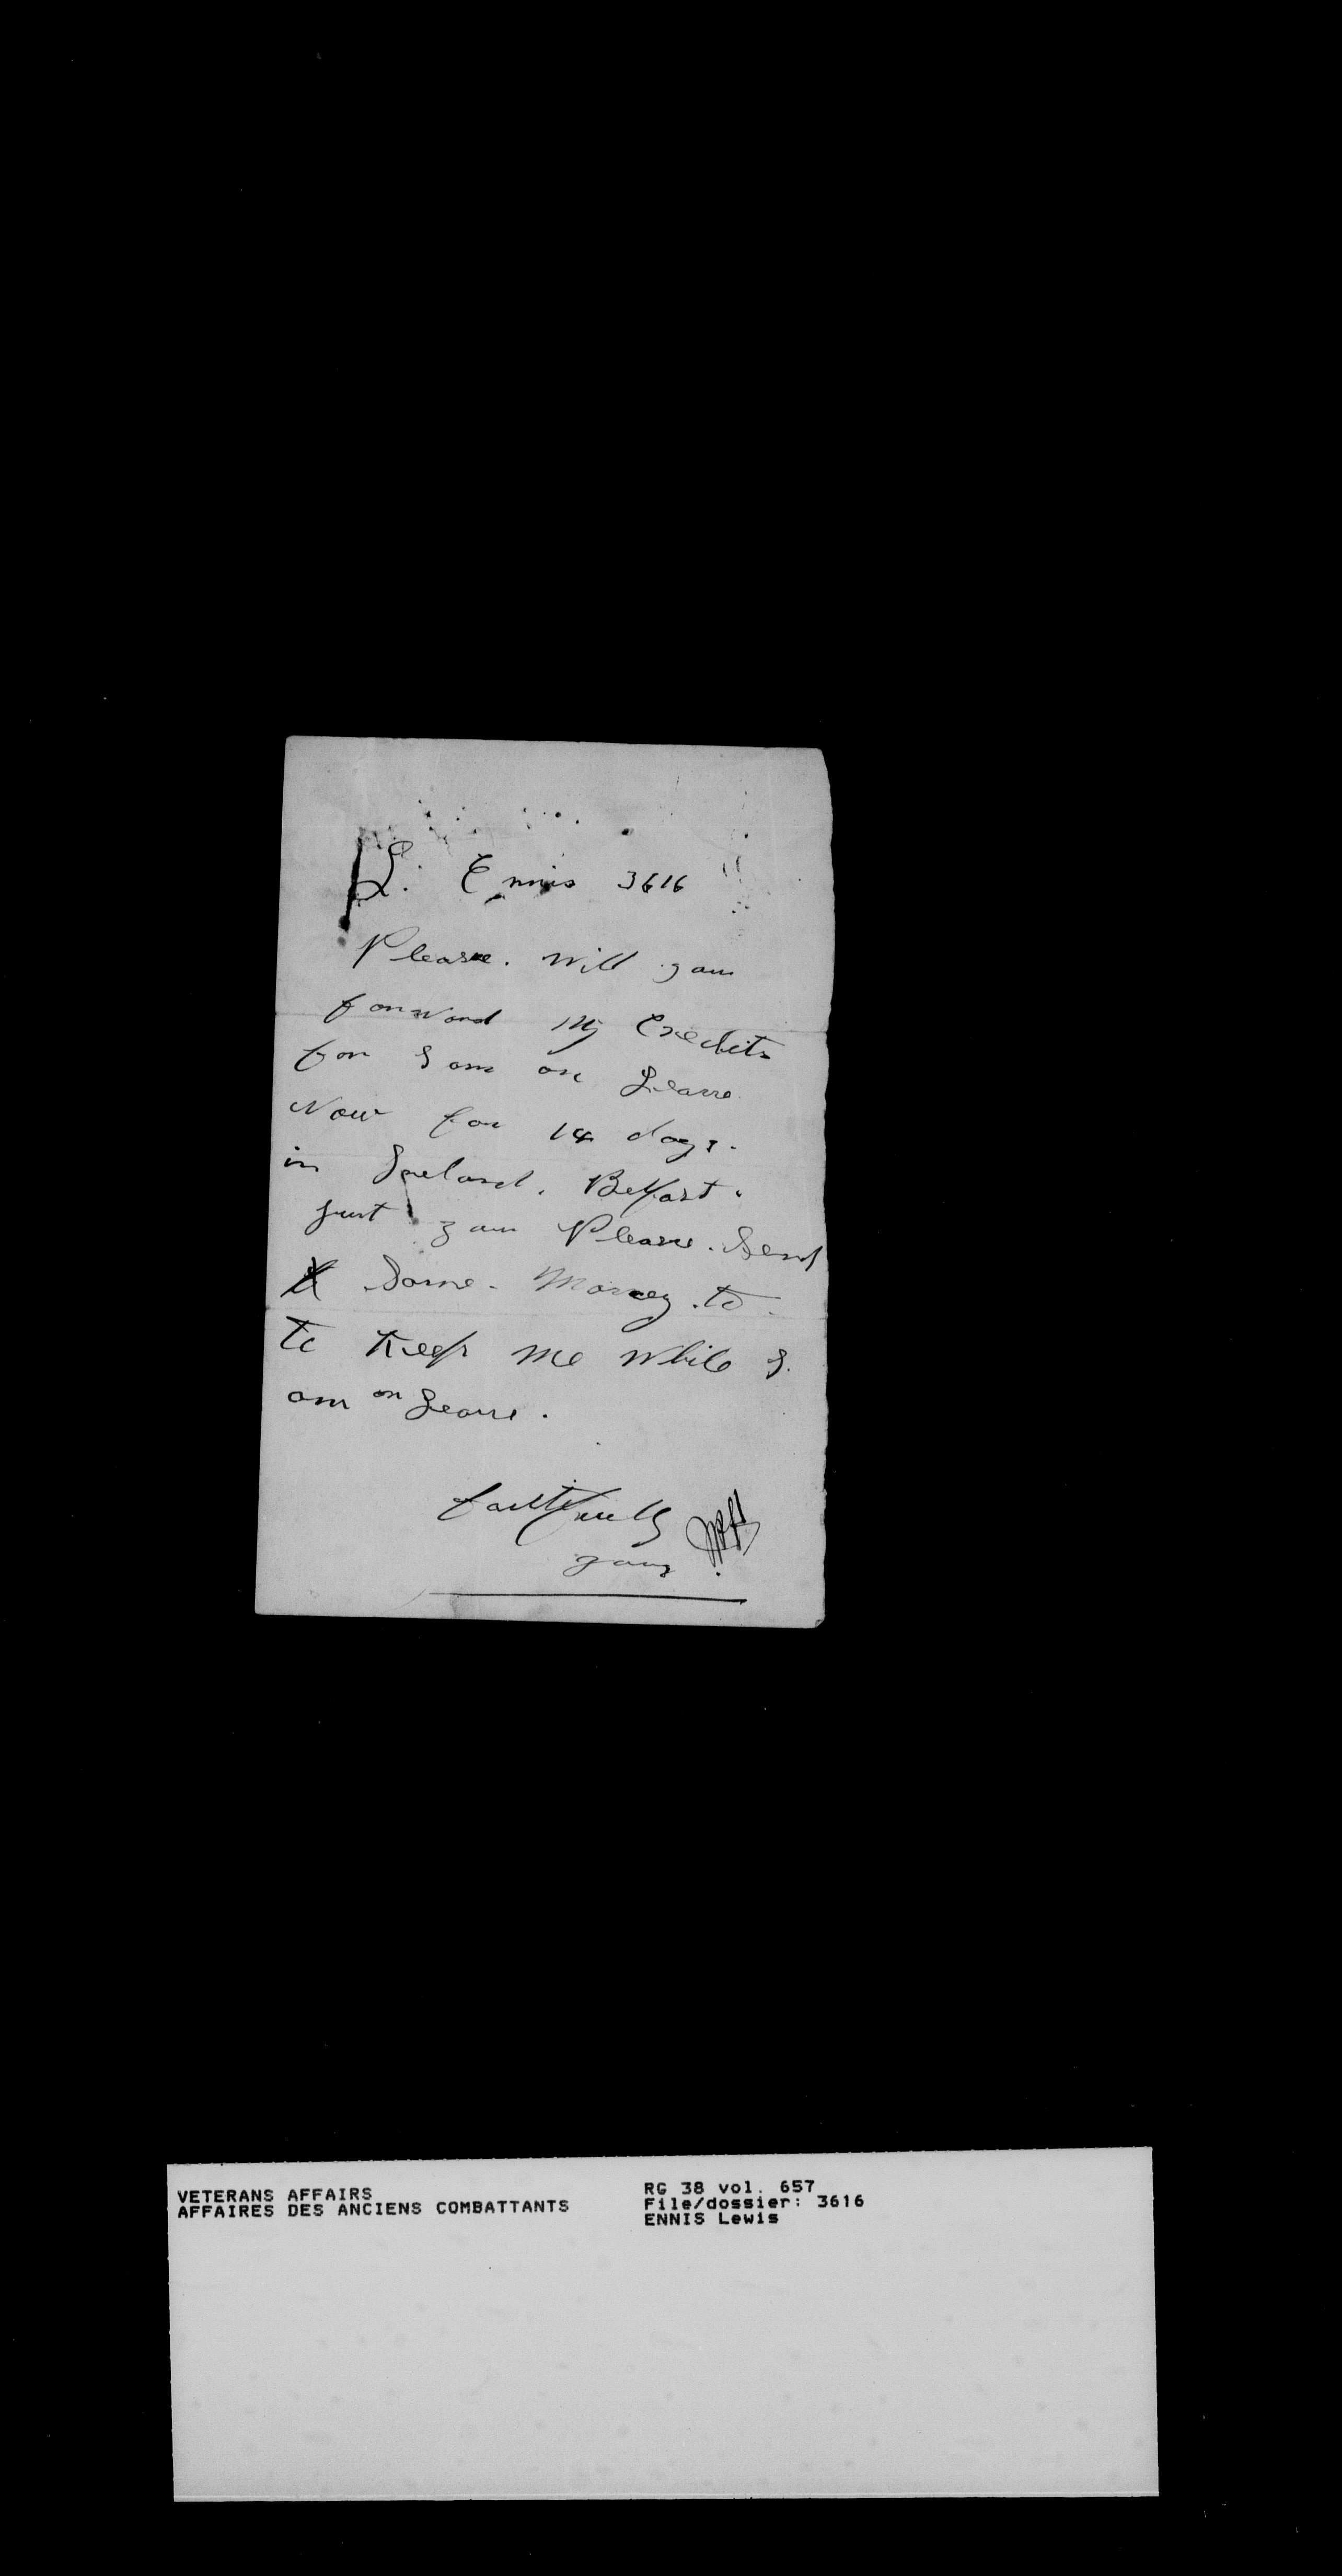 L. Ennis 3616
Please. Will you
forward My Credits
for I am on Leave
Now for 14 days.
in Ireland. Belfast.
just you Please. Send
Some. Money. to.
to Keep me while I.
am on Leave.
faithfully
yours
VETERANS AFFAIRS
AFFAIRES DES ANCIENS COMBATTANTS
RG 38 vol. 657
File/dossier: 3616
ENNIS Lewis